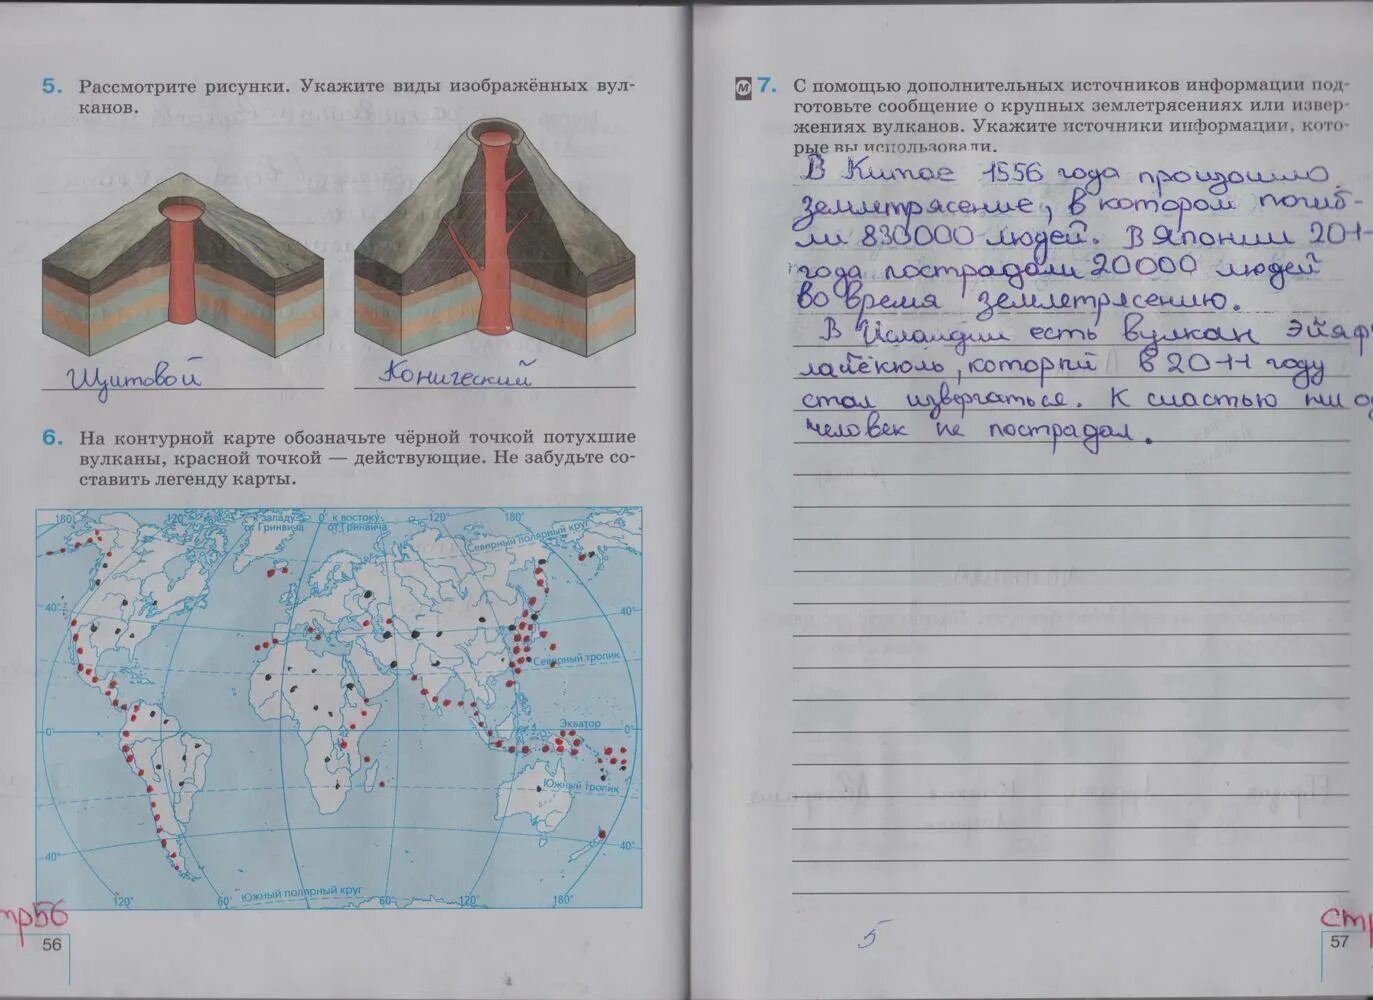 5. Рассмотрите рисунки. Укажите виды изображённых вул-
канов.
Щитовой
Конический
6. На контурной карте обозначьте чёрной точкой потухшие
вулканы, красной точкой — действующие. Не забудьте со-
ставить легенду карты.
180 120° к западу 0° к востоку 120° 180°
от Гринвича от Гринвича
Северный полярный круг
40° 40°
Северный тропик
Экватор
0° 0°
Южный тропик
40° 40°
Южный полярный круг
120° 60° 60° 120° 180°
тр56
56
М 7. С помощью дополнительных источников информации под-
готовьте сообщение о крупных землетрясениях или извер-
жениях вулканов. Укажите источники информации, кото-
рые вы использовали.
В Китае 1556 года произошло
землетрясение, в котором погиб-
ли 830000 людей. В Японии 2011
года пострадали 20000 людей
во время землетрясению.
В Исландии есть вулкан Эйяф
лайёкюль, который в 2011 году
стал извергаться. К счастью ни од
человек не пострадал.
5
стр
57